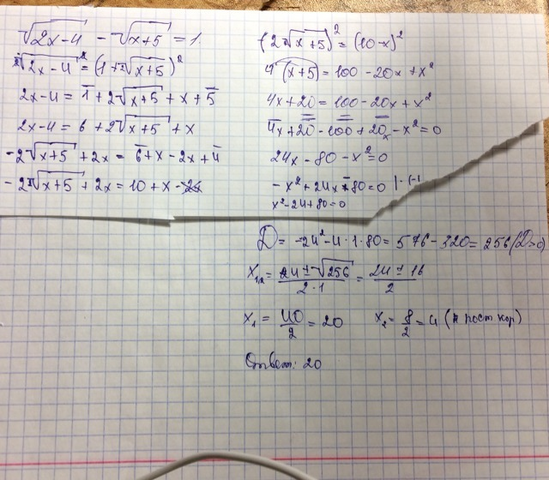 √(2x-4) - √(x+5) = 1.
²√(2x-4)² = (1+²√(x+5))²
2x-4 = 1 + 2√(x+5) + x + 5
2x-4 = 6 + 2√(x+5) + x
-2√(x+5) + 2x = 6 + x - 2x + 4
-2²√(x+5) + 2x = 10 + x
(2√(x+5))² = (10-x)²
4(x+5) = 100 - 20x + x²
4x+20 = 100 - 20x + x²
4x + 20 - 100 + 20x - x² = 0
24x - 80 - x² = 0
-x² + 24x - 80 = 0 | · (-1
x² - 24 + 80 = 0
D = -24² - 4 · 1 · 80 = 576 - 320 = 256 (D>0)
x₁,₂ = (24 ± √256)/(2·1) = (24 ± 16)/2
x₁ = 40/2 = 20   x₂ = 8/2 = 4 (п пост кор)
Ответ: 20